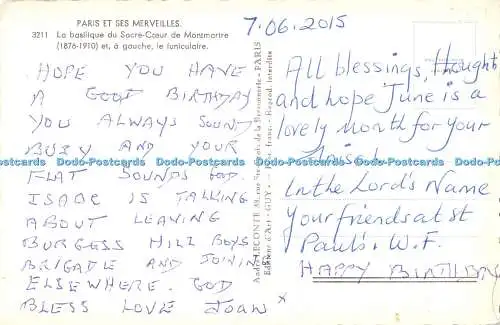 PARIS ET SES MERVEILLES.
3211 La basilique du Sacre-Cœur de Montmartre
(1876-1910) et, à gauche, le funiculaire.
HOPE YOU HAVE
A GOOD BIRTHDAY
YOU ALWAYS SOUND
BUSY AND YOUR
FLAT SOUNDS GOOD.
ISAAC IS TALKING
ABOUT LEAVING
BURGESS HILL BOYS
BRIGADE AND JOINING
ELSEWHERE. GOD
BLESS LOVE JOAN x
André LECONTE
PARIS
Editions d'Art - GUY
Reprod. interdite
7.06.2015
All blessings, thought
and hope June is a
lovely month for your
In the Lord's Name
your friends at St
Paul's. W.F.
HAPPY BIRTHDAY
Dodo-Postcards Dodo-Postcards Dodo-Postcards Dodo-Postcards Dodo-Postcards